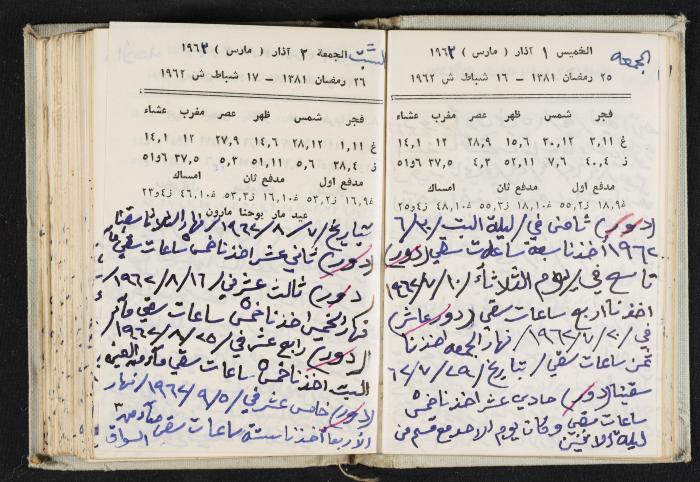 الجمعه
الخميس ١ آذار ( مارس ) ١٩٦٢
٢٥ رمضان ١٣٨١ – ١٦ شباط ش ١٩٦٢
فجر شمس ظهر عصر مغرب عشاء
غ ٣,١١ ٣٠,١٢ ١٥,٦ ٢٨,٩ ١٢ ١٤,١
ز ٤٠,٤ ٧,٦ ٥٢,١١ ٤,٣ ٣٧,٥ ٦و٥١
مدفع اول مدفع ثان امساك
غ ١٨,٩ ز ٥٥,٢ غ ١٨,١٠ ز ٥٥,٣ غ ٤٨,١٠ ز ٤و٢٥
(دور) ثامن في / ليلة السبت / ٣٠ / ٦
١٩٦٢ اخذنا سبعة ساعات سقي (دور)
تاسع في يوم الثلاثاء / ١٠ / ٧ / ١٩٦٢
اخذنا اربع ساعات سقي (دور عاشر)
في / ٢٠ / ٧ / ١٩٦٢ / نهار الجمعه اخذنا
ثمن ساعات سقي / بتاريخ / ٢٩ / ٧ / ٦٢
سقينا (دور) حادي عشر اخذنا خمس
ساعات سقي وكان يوم الاحد مع قسم من
ليلة الاثنين
السبت
الجمعة ٢ آذار ( مارس ) ١٩٦٢
٢٦ رمضان ١٣٨١ – ١٧ شباط ش ١٩٦٢
فجر شمس ظهر عصر مغرب عشاء
غ ١,١١ ٢٨,١٢ ١٤,٦ ٢٧,٩ ١٢ ١٤,١
ز ٣٨,٤ ٥,٦ ٥١,١١ ٥,٣ ٣٧,٥ ٦و٥١
مدفع اول مدفع ثان امساك
غ ١٦,٩ ز ٥٣,٢ غ ١٦,١٠ ز ٥٣,٣ غ ٤٦,١٠ ز ٤و٢٣
عيد مار يوحنا مارون
بتاريخ / ٧ / ٨ / ١٩٦٢ / نهار الثلاثا سقينا
(دور) ثاني عشر اخذنا خمس ساعات سقي
(دور) ثالث عشر في / ١٦ / ٨ / ١٩٦٢ /
نهار الخميس اخذنا خمس ساعات سقي
(دور) رابع عشر في / ٢٥ / ٨ / ١٩٦٢ /
السبت اخذنا خمس ساعات سقي
(دور) خامس عشر في / ٥ / ٩ / ١٩٦٢ / نهار
الاربعا اخذنا ستة ساعات سقي